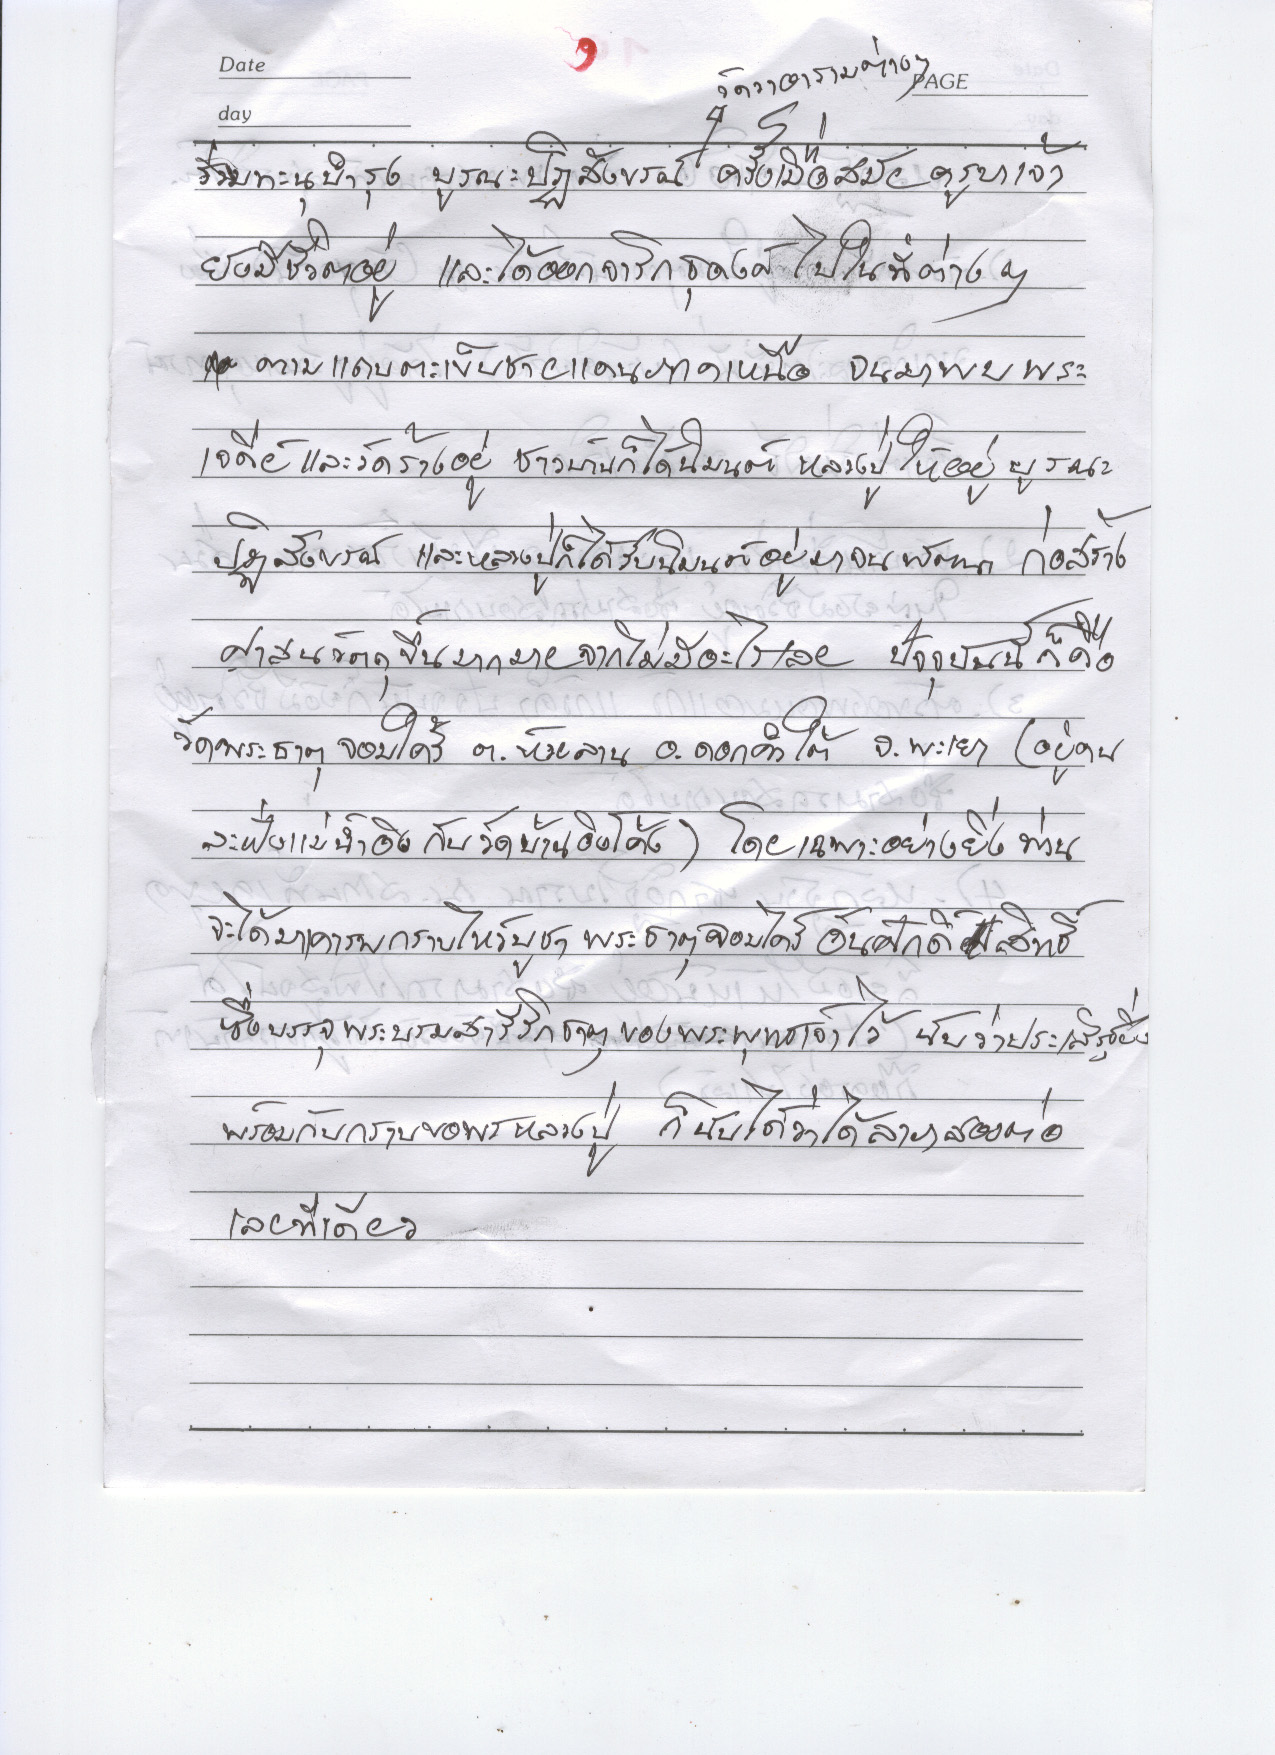 Date
๑
วัดวาอารามต่างๆ
PAGE
day
ร่วมทะนุบำรุง บูรณะปฏิสังขรณ์ ครั้งเมื่อสมัย ครูบาเจ้า
ยังมีชีวิตอยู่ และได้ออกจาริกธุดงค์ ไปในที่ต่างๆ
ตามแถบตะเข็บชายแดนภาคเหนือ จนมาพบ พระ
เจดีย์ และวัดร้างอยู่ ชาวบ้านก็ได้นิมนต์ หลวงปู่ ให้อยู่ บูรณะ
ปฏิสังขรณ์ และหลวงปู่ก็ได้รับนิมนต์อยู่มาจน พัฒนา ก่อสร้าง
ศาสนวัตถุขึ้นมากมายจากไม่มีอะไรเลย ปัจจุบันนี้ก็คือ
วัดพระธาตุจอมไคร้ ต.ห้วยลาน อ.ดอกคำใต้ จ.พะเยา (อยู่คน
ละฝั่งแม่น้ำอิง กับวัดบ้านอิงโค้ง) โดยเฉพาะอย่างยิ่ง ท่าน
จะได้มาเคารพกราบไหว้บูชา พระธาตุจอมไคร้ อันศักดิ์สิทธิ์
ซึ่งบรรจุพระบรมสารีริกธาตุของพระพุทธเจ้าไว้ นับว่าประเสริฐยิ่ง
พร้อมกับกราบขอพรหลวงปู่ ก็นับได้ว่าได้ลาภสองต่อ
เลยทีเดียว